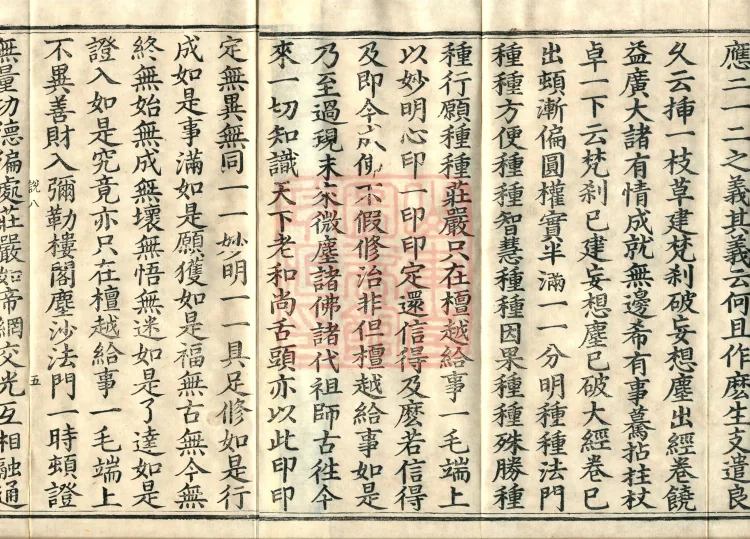 應二一二之義其義云何且作麽生支遣良
久云揷一枝草建梵刹破妄想塵出經卷饒
益廣大諸有情成就無邊希有事驀拈拄杖
卓一下云梵刹已建妄想塵已破大經卷已
出頓漸偏圓權實半滿一一分明種種法門
種種方便種種智慧種種因果種種殊勝種
種行願種種莊嚴只在檀越給事一毛端上
以妙明心印一印印定還信得及麽若信得
及即今成佛不假修治非但檀越給事如是
乃至過現未來微塵諸佛諸代祖師古往今
來一切知識天下老和尚舌頭亦以此印印
定無異無同一一妙明一一具足修如是行
成如是事滿如是願獲如是福無古無今無
終無始無成無壞無悟無迷如是了達如是
證入如是究竟亦只在檀越給事一毛端上
不異善財入彌勒樓閣塵沙法門一時頓證
說八 五
無量功德徧處莊嚴如帝網交光互相融通